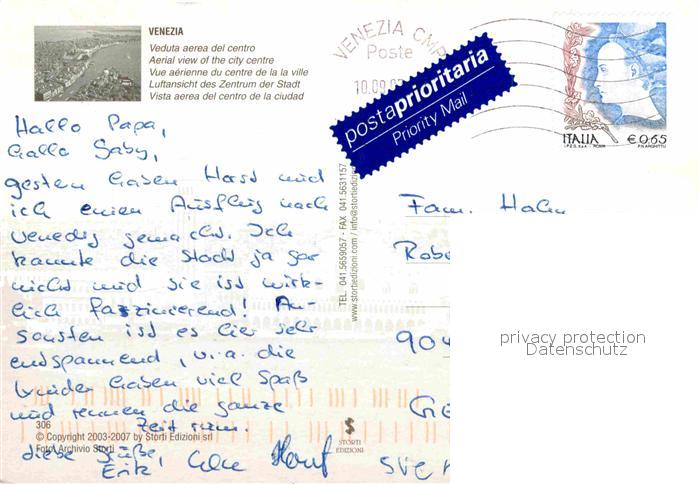 VENEZIA
Veduta aerea del centro
Aerial view of the city centre
Vue aérienne du centre de la la ville
Luftansicht des Zentrum der Stadt
Vista aerea del centro de la ciudad
VENEZIA CMP
Poste
postaprioritaria
Priority Mail
ITALIA € 0,65
Hallo Papa,
Hallo Gaby,
gestern haben Horst und
ich einen Ausflug nach
Venedig gemacht. Ich
kannte die Stadt ja gar
nicht und sie ist wirk-
lich faszinierend! An-
sonsten ist es hier sehr
entspannend, v.a. die
Kinder haben viel Spaß
und rennen die ganze
Zeit rum.
Liebe Grüße,
Erik
TEL. 041.5659057 - FAX 041.5631157
www.stortiedizioni.com / info@stortiedizioni
Fam. Hahn
Robe
904
privacy protection
Datenschutz
306
© Copyright 2003-2007 by Storti Edizioni srl
Foto: Archivio Storti
STORTI
EDIZIONI